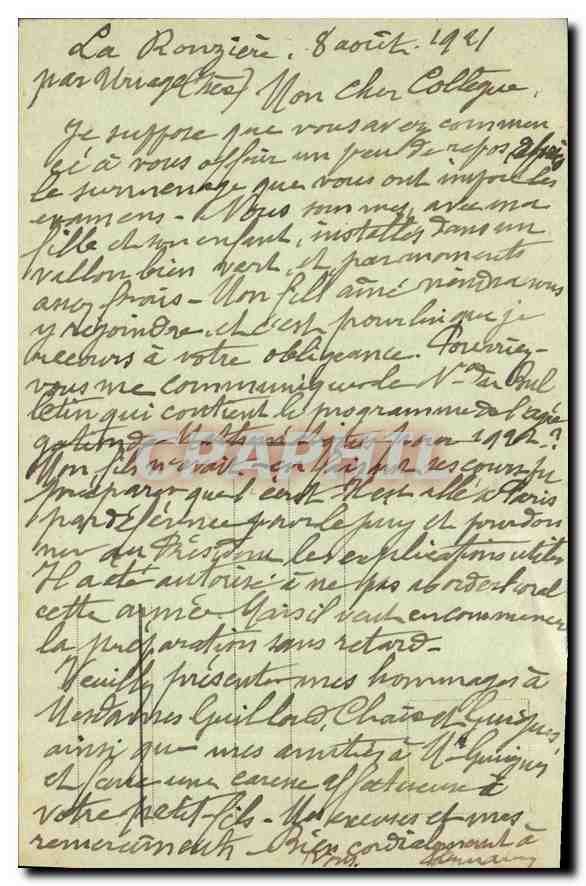 La Ronzière. 8 août. 1921
par Uriage (Isère) Mon cher Collègue,
Je suppose que vous avez commen
cé à vous offrir un peu de repos, après
le surmenage que vous ont imposé les
examens - Nous sommes, avec ma
fille et son enfant, installés dans un
vallon bien vert, et par moments
assez frais - Mon fils aîné viendra nous
y rejoindre, et c'est pour lui que je
recours à votre obligeance. Pourriez-
vous me communiquer le No du Bul
letin qui contient le programme de l'agré
gation de pour 1922 ?
Mon fils n'avait en faisant ses cours pu
préparer que l'écrit. Il est allé à Paris
par déférence pour le jury et pour don
ner au Président les explications utiles
Il a été autorisé à ne pas aborder l'oral
cette année. Mais il veut en commencer
la préparation sans retard -
Veuillez présenter mes hommages à
Mesdames Guillard, Chais et
ainsi que mes amitiés à Mr
et faire une caresse affectueuse à
votre petit-fils - Mes excuses et mes
remerciements - Bien cordialement à
vous.
CPAPHIL